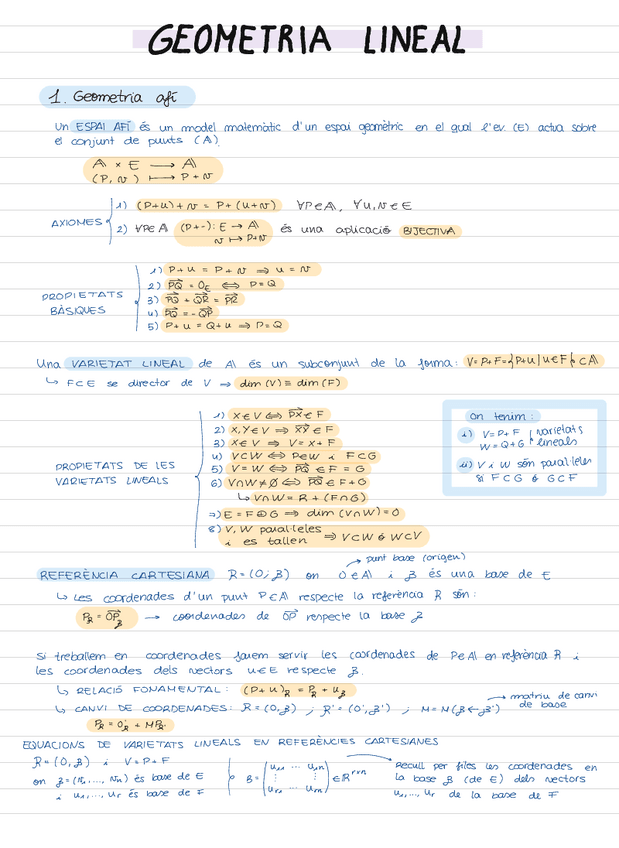 GEOMETRIA LINEAL
1. Geometria afí
Un ESPAI AFÍ és un model matemàtic d'un espai geomètric en el qual l'ev. (E) actua sobre
el conjunt de punts (𝔸).
𝔸 × E ⟶ 𝔸
(P, v) ⟼ P + v
AXIOMES
1) (P+u) + v = P + (u+v) ∀P∈𝔸, ∀u,v∈E
2) ∀P∈𝔸 (P+-): E → 𝔸 és una aplicació BIJECTIVA
v ⟼ P+v
PROPIETATS BÀSIQUES
1) P+u = P+v ⟹ u = v
2) PQ = 0E ⟺ P=Q
3) PQ + QR = PR
4) PQ = -QP
5) P+u = Q+u ⟹ P=Q
Una VARIETAT LINEAL de 𝔸 és un subconjunt de la forma: V=P+F={P+u | u∈F} ⊂ 𝔸
↳ F⊂E se director de V → dim (V) ≡ dim (F)
PROPIETATS DE LES
VARIETATS LINEALS
1) X∈V ⟺ PX ∈ F
2) X,Y∈V ⟹ XY ∈ F
3) X∈V ⟹ V = X + F
4) V⊂W ⟺ P∈W i F⊂G
5) V=W ⟺ PQ ∈ F = G
6) V∩W≠∅ ⟺ PQ ∈ F+G
↳ V∩W = R + (F∩G)
7) E = F⊕G ⟹ dim (V∩W) = 0
8) V, W paral·leles
i es tallen ⟹ V⊂W ó W⊂V
On tenim:
i) V=P+F varietats
W=Q+G lineals
ii) V i W són paral·leles
si F⊂G ó G⊂F
punt base (origen)
REFERÈNCIA CARTESIANA R=(O; B) on O∈𝔸 i B és una base de E
↳ Les coordenades d'un punt P∈𝔸 respecte la referència R són:
P_R = OP_B → coordenades de OP respecte la base B
Si treballem en coordenades farem servir les coordenades de P∈𝔸 en referència R i
les coordenades dels vectors u∈E respecte B.
↳ RELACIÓ FONAMENTAL: (P+u)_R = P_R + u_B
matriu de canvi
de base
↳ CANVI DE COORDENADES: R=(O,B) ; R'=(O',B') ; M=M(B←B')
P_R = O'_R + MP_R'
EQUACIONS DE VARIETATS LINEALS EN REFERÈNCIES CARTESIANES
R=(O,B) i V=P+F
on B=(v₁,..., vₙ) és base de E
i u₁,..., uᵣ és base de F
B = (u₁₁ ... u₁ₙ ⋮ ⋮ uᵣ₁ ... uᵣₙ) ∈ ℝʳˣⁿ
Recull per files les coordenades en
la base B (de E) dels vectors
u₁,..., uᵣ de la base de F